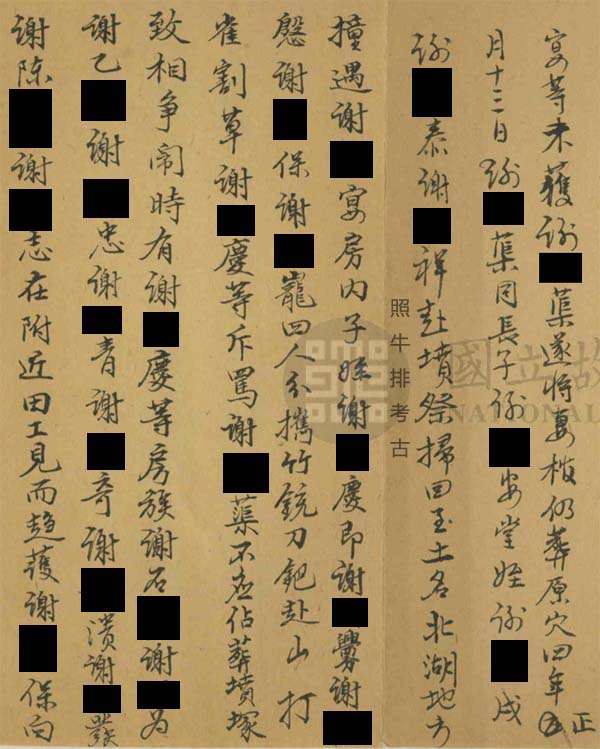 宴等未獲謝 蕖遂將妻棺仍葬原穴四年正
月十三日謝 蕖同長子謝 安堂姪謝 成
謝 泰謝 祥赴墳祭掃回至土名北湖地方
撞遇謝 宴房內子姪謝 慶即謝 謝
慇謝 保謝 寵四人分攜竹銃刀鈀赴山打
雀割草謝 慶等斥罵謝 蕖不應佔葬墳塚
致相爭鬧時有謝 慶等房族謝石 謝 为
謝乙 謝 忠謝 青謝 奇謝 漬謝 發
謝陳 謝 志在附近田工見而趨護謝 保向
照牛排考古
國立故
NATIONAL